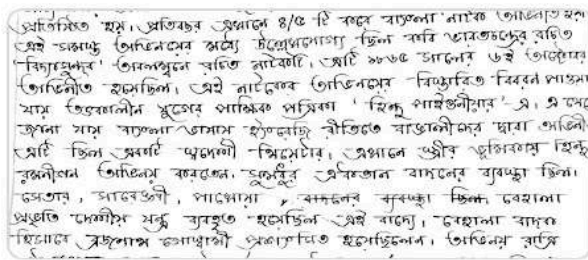 প্রতিষ্ঠিত হয়। প্রতিবছর এখানে ৪/৫ টি করে বাংলা নাটক অভিনীত হত
এই সমস্ত অভিনয়ের মধ্যে উল্লেখযোগ্য ছিল কবি ভারতচন্দ্রের রচিত
'বিদ্যাসুন্দর' অবলম্বনে রচিত নাটকটি। এটি ১৮৩৫ সালের ৬ই অক্টোবর
অভিনীত হয়েছিল। এই নাটকের অভিনয়ের বিস্তারিত বিবরন পাওয়া
যায় তৎকালীন যুগের পাক্ষিক পত্রিকা 'হিন্দু পাইওনীয়ার' -এ। এ থেকে
জানা যায় বাংলা ভাষায় ইংরেজি রীতিতে বাঙালীদের দ্বারা অভিনী
এটি ছিল একটি স্বদেশী থিয়েটার। এখানে স্ত্রীর ভূমিকায় হিন্দু
রমনীগন অভিনয় করতেন। সুমধুর ঐকতান বাদনের ব্যবস্থা ছিল।
সেতার, সারেঙ্গী, পাখোয়া, বাদনের ব্যবস্থা ছিল বেহালা
প্রভৃতি দেশীয় যন্ত্র ব্যবহৃত হয়েছিল এই বাদ্যে। বেহালা বাদক
হিসাবে ব্রজনাথ গোস্বামী প্রশংসিত হয়েছিলেন। অভিনয় রাত্রি